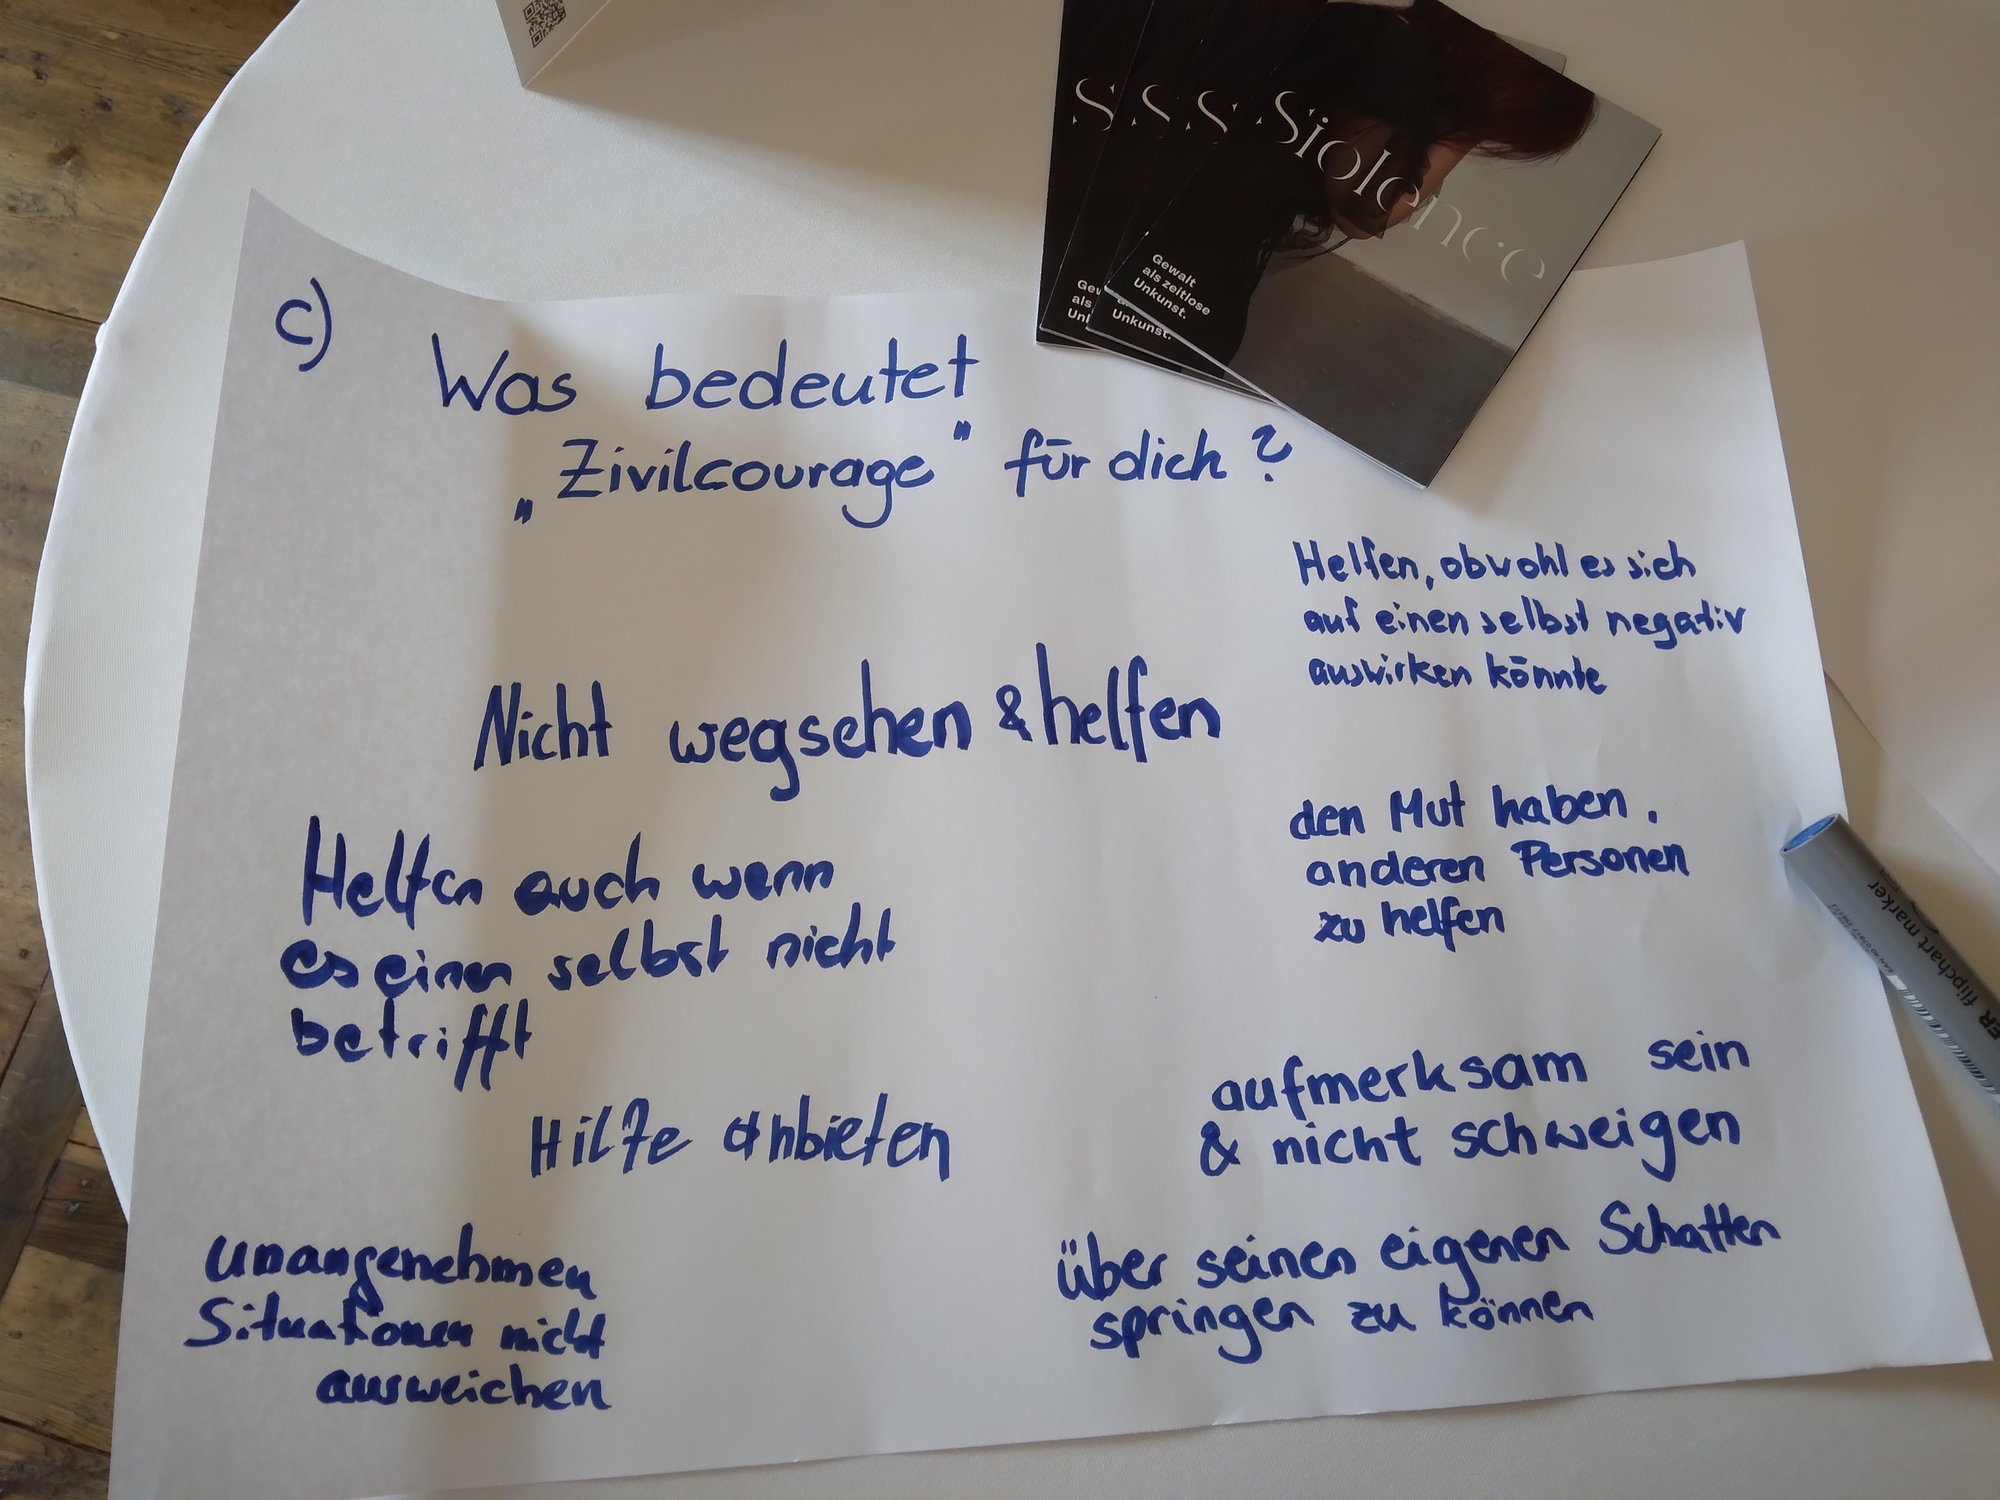 S
S
S
Siolence
Gewalt
als zeitlose
Unkunst.
Gew
als
Unk
Unkunst.
c)
Was bedeutet
„Zivilcourage" für dich?
Helfen, obwohl es sich
auf einen selbst negativ
auswirken könnte
Nicht wegsehen & helfen
den Mut haben.
anderen Personen
zu helfen
Helfen auch wenn
es einen selbst nicht
betrifft
Hilfe anbieten
aufmerksam sein
& nicht schweigen
unangenehmen
Situationen nicht
ausweichen
über seinen eigenen Schatten
springen zu können
ER flipchart marker